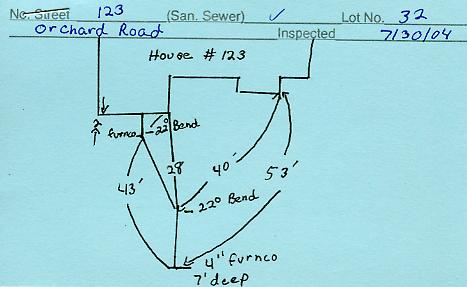 No. Street 123 (San. Sewer) ✓ Lot No. 32
Orchard Road Inspected 7/30/04
House # 123
2
furnco 22° Bend
28
40'
53'
43'
22° Bend
4" furnco
7' deep